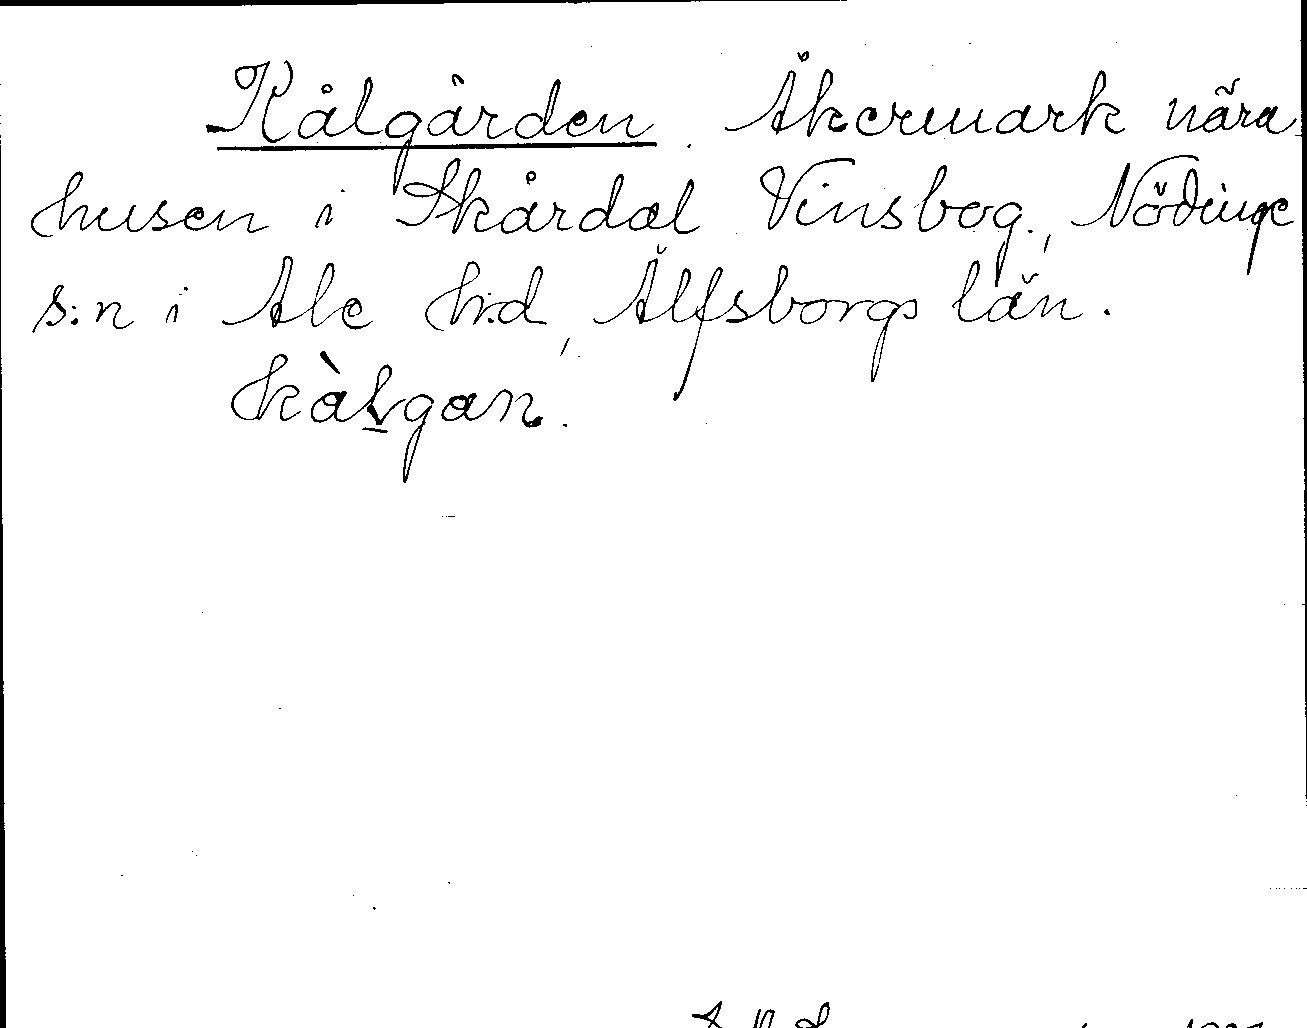 Kålgården. Åkermark nära
husen i Skårdal Vinsbog., Nödinge
s:n i Ale h:d, Älfsborgs län.
kàļgan.